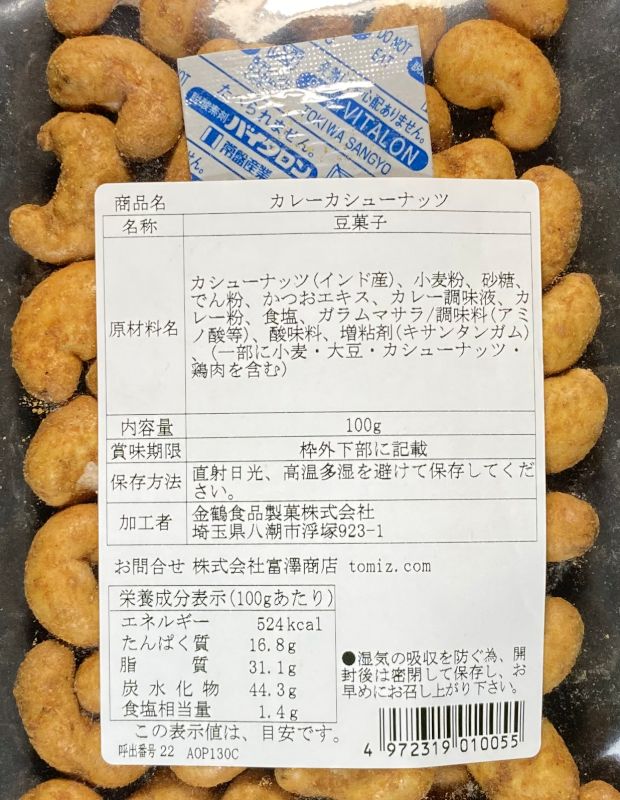 DO NOT
EAT
心配ありません。
VITALON
TOKIWA SANGYO
たべられません。
脱酸素剤
バイタロン
常盤産業
商品名 カレーカシューナッツ
名称 豆菓子
原材料名 カシューナッツ(インド産)、小麦粉、砂糖、
でん粉、かつおエキス、カレー調味液、カ
レー粉、食塩、ガラムマサラ/調味料(アミ
ノ酸等)、酸味料、増粘剤(キサンタンガム)
、(一部に小麦・大豆・カシューナッツ・
鶏肉を含む)
内容量 100g
賞味期限 枠外下部に記載
保存方法 直射日光、高温多湿を避けて保存してくだ
さい。
加工者 金鶴食品製菓株式会社
埼玉県八潮市浮塚923-1
お問合せ 株式会社富澤商店 tomiz.com
栄養成分表示(100gあたり)
エネルギー 524kcal
たんぱく質 16.8g
脂質 31.1g
炭水化物 44.3g
食塩相当量 1.4g
この表示値は、目安です。
呼出番号22 AOP130C
●湿気の吸収を防ぐ為、開
封後は密閉して保存し、お
早めにお召し上がり下さい。
4 972319 010055